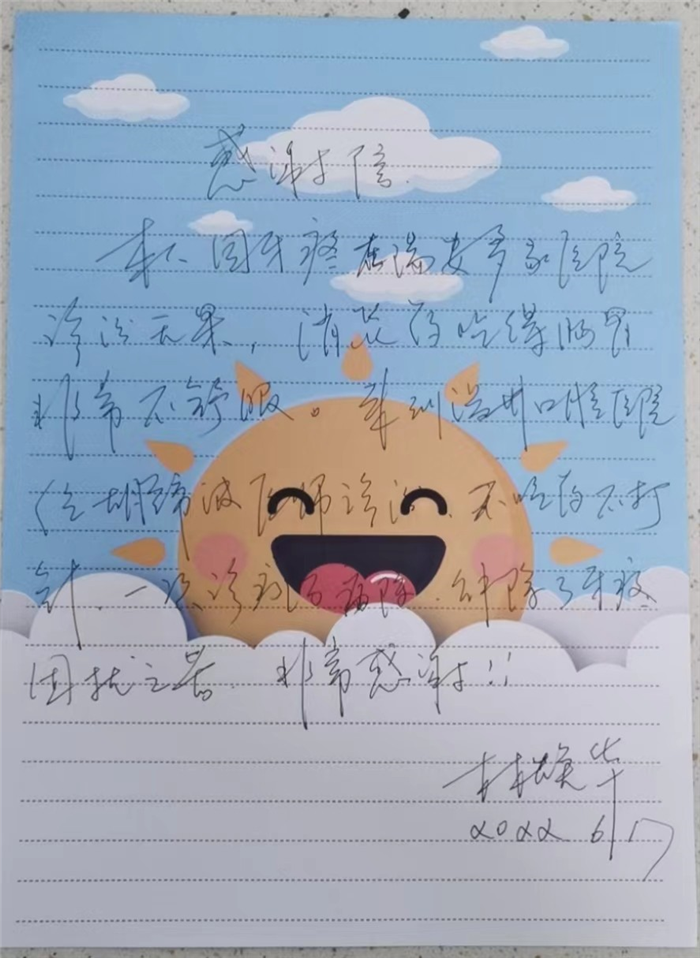 感谢信
本人因牙疼在瑞安多家医院
诊治无果，消炎药吃得肠胃
非常不舒服。来到温州口腔医院
经胡 波医师诊治、不吃药不打
针、一次诊疗 病除、解除了牙疼
困扰之苦、非常感谢!!
林焕华
2022 6/17